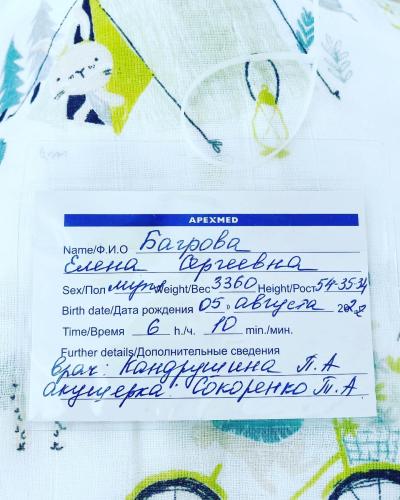 APEXMED
Name/Ф.И.О Багрова
Елена Сергеевна
Sex/Пол муж Weight/Вес 3360 Height/Рост 54-35-34
Birth date/Дата рождения 05 августа 2022
Time/Время 6 h./ч. 10 min./мин.
Further details/Дополнительные сведения
врач: Кандрушина П.А
акушерка: Сокоренко Т.А.